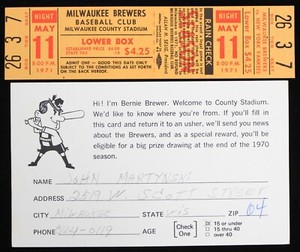 26 3 7
NIGHT
MAY
11
8:00 P.M.
1971
MILWAUKEE BREWERS
BASEBALL CLUB
MILWAUKEE COUNTY STADIUM
LOWER BOX
ESTABLISHED PRICE
$4.25
ADMIT ONE — GOOD THIS DATE ONLY
SUBJECT TO THE CONDITIONS SET FORTH
ON THE BACK HEREOF.
RAIN CHECK
NIGHT
MAY
11
8:00 P.M.
1971
LOWER BOX
$4.25
26 3 7
Hi! I'm Bernie Brewer. Welcome to County Stadium.
We'd like to know where you're from. If you'll fill in
this card and return it to an usher, we'll send you news
about the Brewers, and as a special reward, you'll be
eligible for a big prize drawing at the end of the 1970
season.
NAME JOHN MARTYNSKI
ADDRESS W. SCOTT STREET
CITY STATE WIS ZIP 04
PHONE AGE
Check
One
15 or under
15 thru 40
over 40